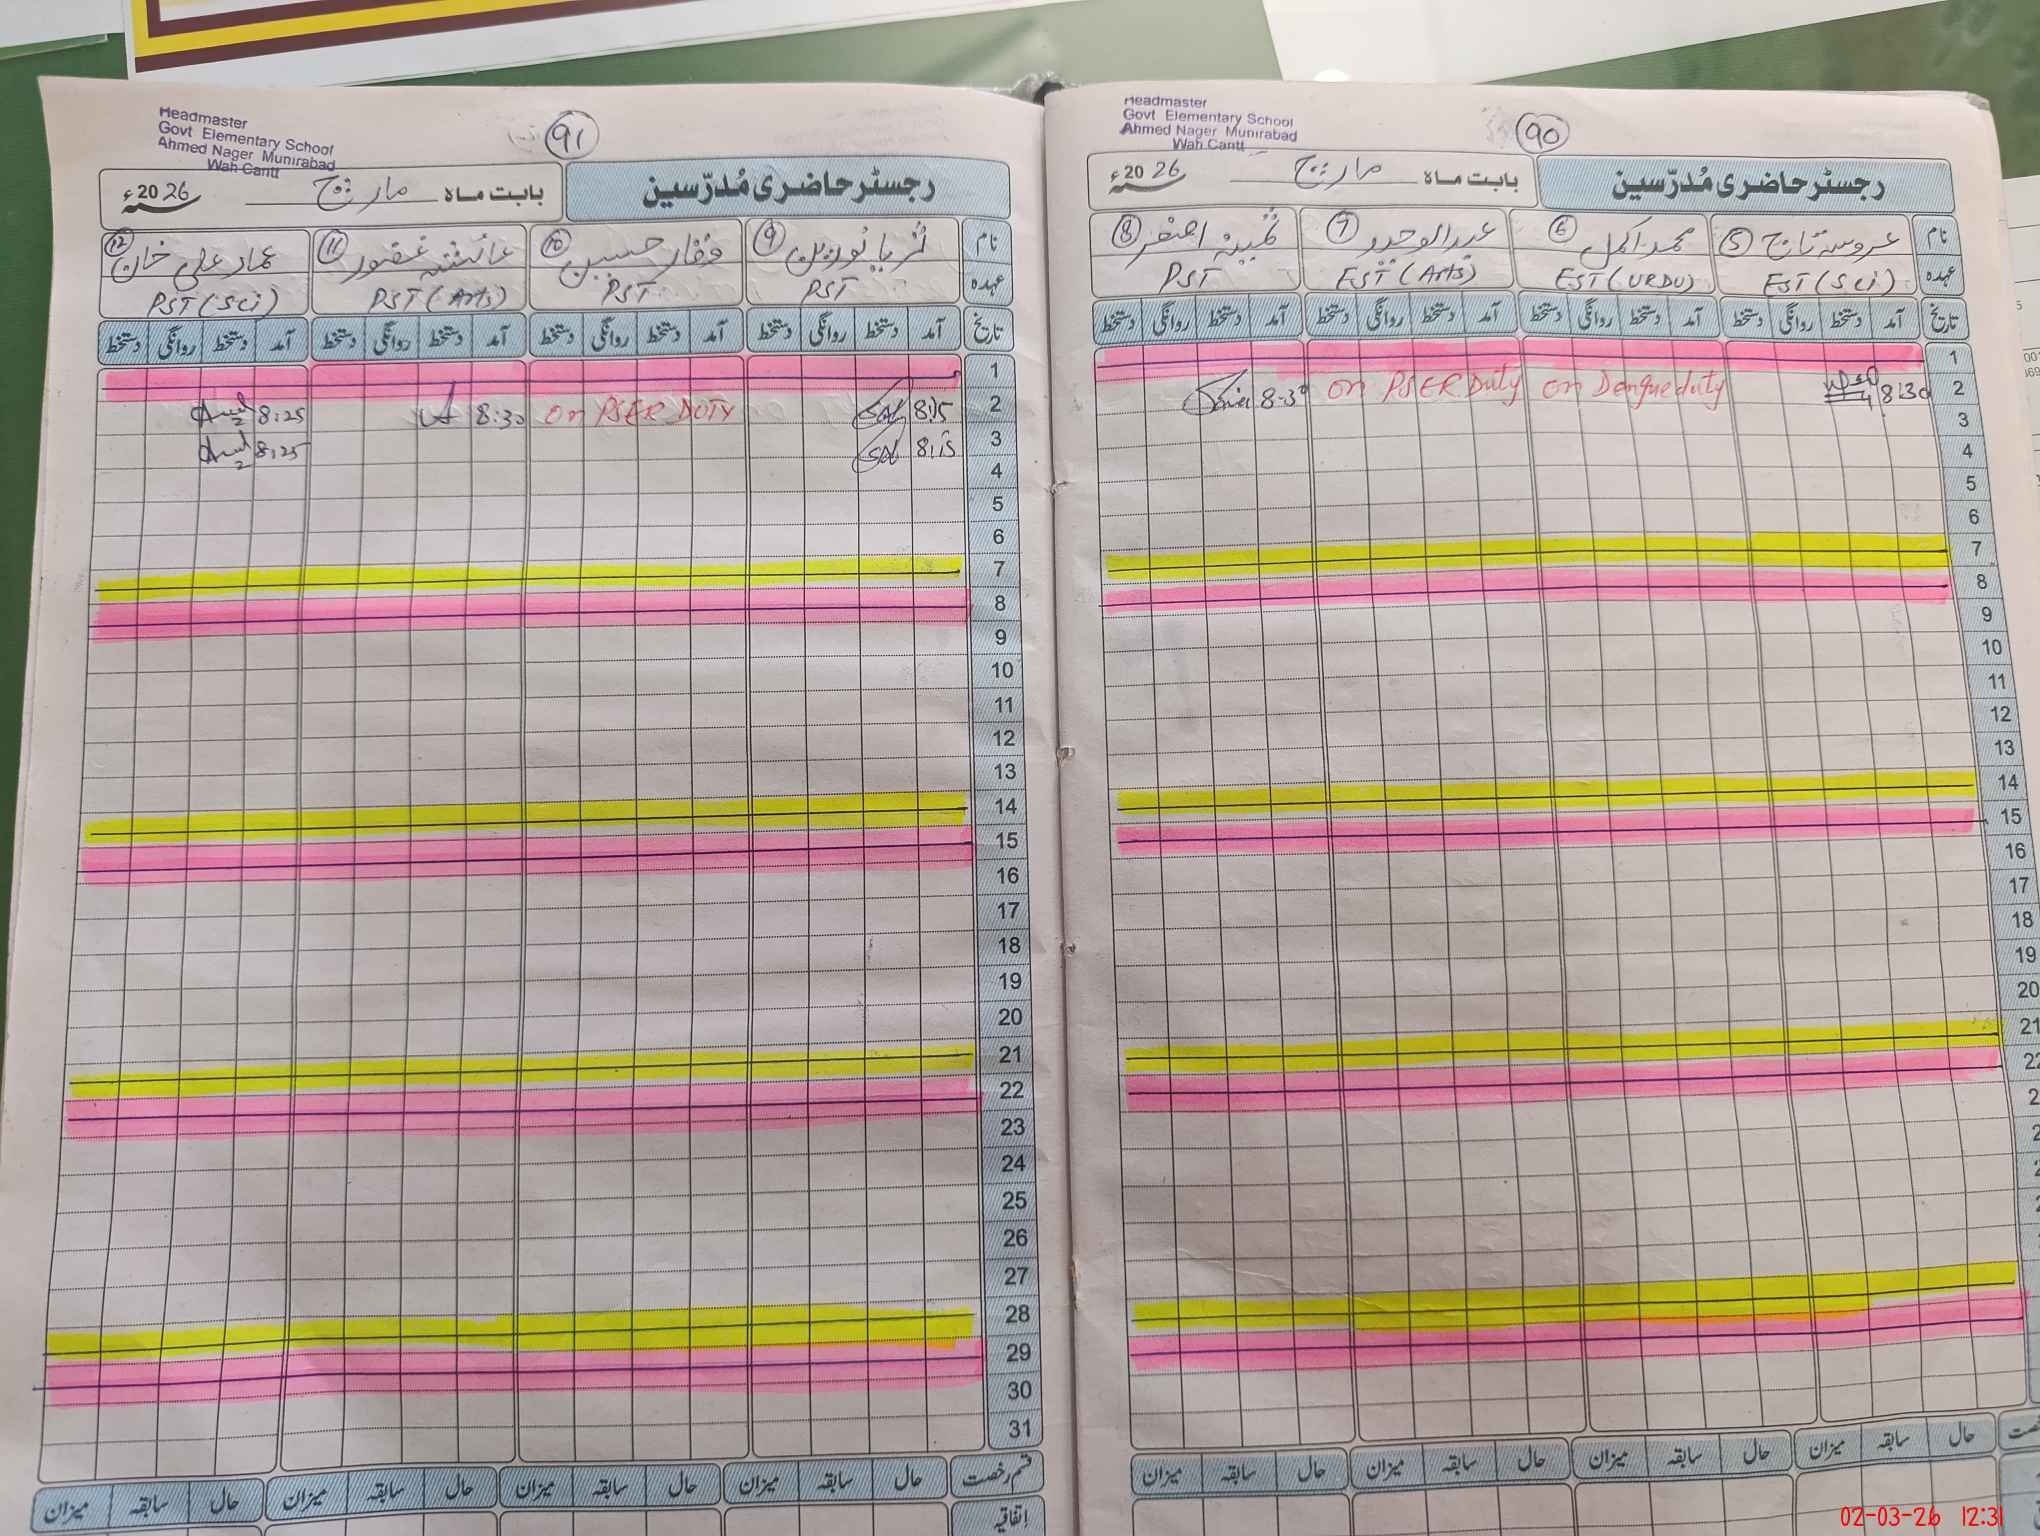 Headmaster
Govt Elementary School
Ahmed Nager Munirabad
Wah Cantt
90
رجسٹر حاضری مُدرّسین
بابت ماہ مارچ 2026ء
نام
⑤ عروسہ تاج
⑥ محمد اکمل
⑦ عبدالوحید
⑧ ثمینہ اصغر
عہدہ
EST (Sci)
EST (URDU)
EST (Arts)
PST
تاریخ آمد دستخط روانگی دستخط آمد دستخط روانگی دستخط آمد دستخط روانگی دستخط آمد دستخط روانگی دستخط
1
2 8:30 on Dengue duty on PSER Duty 8:30
3
4
5
6
7
8
9
10
11
12
13
14
15
16
17
18
19
20
21
22
حال سابقہ میزان حال سابقہ میزان حال سابقہ میزان حال سابقہ میزان
Headmaster
Govt Elementary School
Ahmed Nager Munirabad
Wah Cantt
91
رجسٹر حاضری مُدرّسین
بابت ماہ مارچ 2026ء
نام
⑨ ثریا نورین
⑩ وقار حسین
⑪ عائشہ غفور
⑫ عماد علی خان
عہدہ
PST
PST
PST (Arts)
PST (Sci)
تاریخ آمد دستخط روانگی دستخط آمد دستخط روانگی دستخط آمد دستخط روانگی دستخط آمد دستخط روانگی دستخط
1
2 8:15 on PSER DUTY 8:30 8:25
3 8:15 8:25
4
5
6
7
8
9
10
11
12
13
14
15
16
17
18
19
20
21
22
23
24
25
26
27
28
29
30
31
قسم رخصت حال سابقہ میزان حال سابقہ میزان حال سابقہ میزان حال سابقہ میزان
اتفاقیہ
02-03-26 12:31